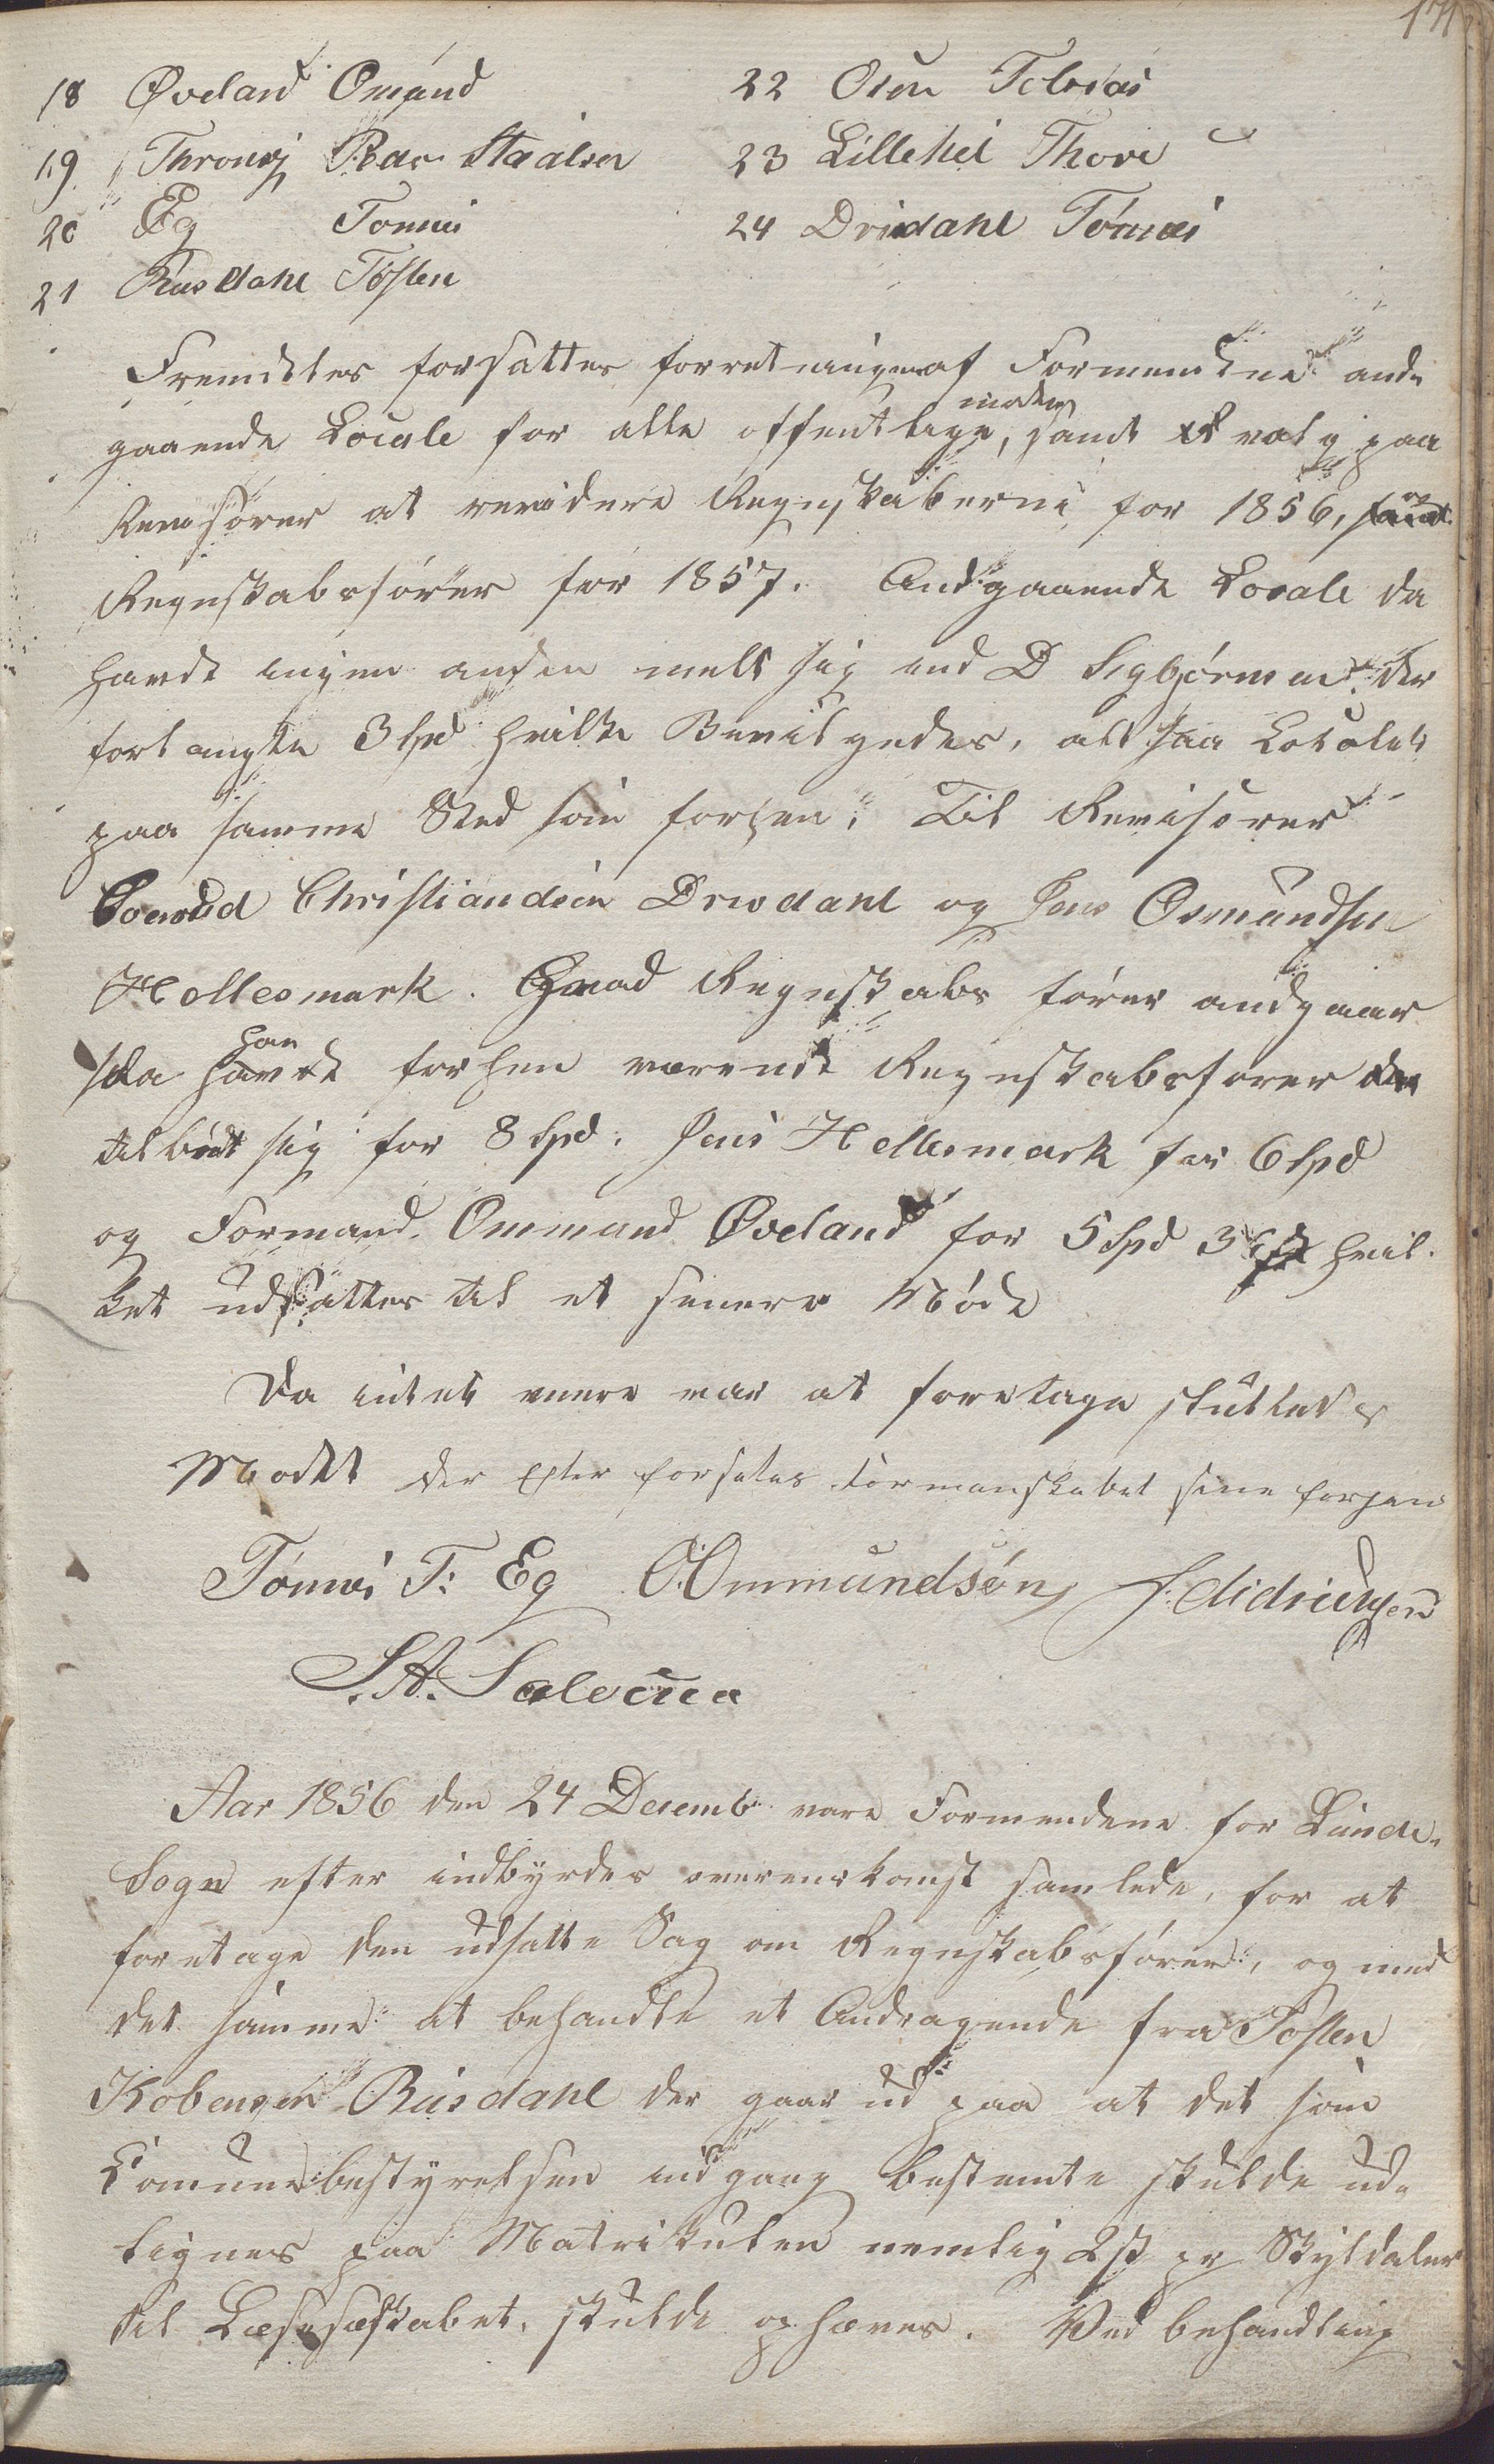 171
18 Øveland Omund
19 Thronvj Rds. Staalsen
20 Eg Tønnes
21 Rusdahl Tosten
22 Osen Tobias
23 Lillehei Thore
24 Drivdahl Tónnes
Fremdeles forsattes forretningen af Formendene ande
gaaende Locale for alle offentlige, møder samt et valg paa
Revisorer at revidere Regnskaberne for 1856, og
Regnskabsfører for 1857. Andgaaende Locale da
havde ingen anden meldt sig end D Sigbjørnsen der
forlangte 3 Spd hvilke Bevilgedes, alt saa Localet
paa samme Sted som forhen; Til Revisorer
Christiandsen Drivdahl og Jens Osmundsen
Hellesmark. Hvad Regnskabs fører andgaar
saa han havde forhen værende Regnskabsfører
tilbødt sig for 8 Spd. Jens Hellesmark for 6 Spd
og Formand. Ommund Øveland for 5 Spd 3 hvil-
ket udsattes til et senere Møde
Da intet mere var at foretage sluttedes
Mødet der efter forsetes formanskabet sine forhen
Tónnes T: Eg O:Ommundsón J. Didricksen
S.A. Salvesen
Aar 1856 den 24 Decemb. vare Formendene for Lunde-
Sogn efter indbyrdes overenskomst samlede, for at
foretage den udsatte Sag om Regnskabsfører, og med
det samme at behandle et Andragende fra Tosten
Kobensen Rusdahl der gaar ud paa at det som
Comunebestyrelsen engang bestemte skulde ud-
lignes paa Matrikulen nemlig 2 ß pr Skyldaler
til Læseselskabet, skulde ophæves. Ved behandling